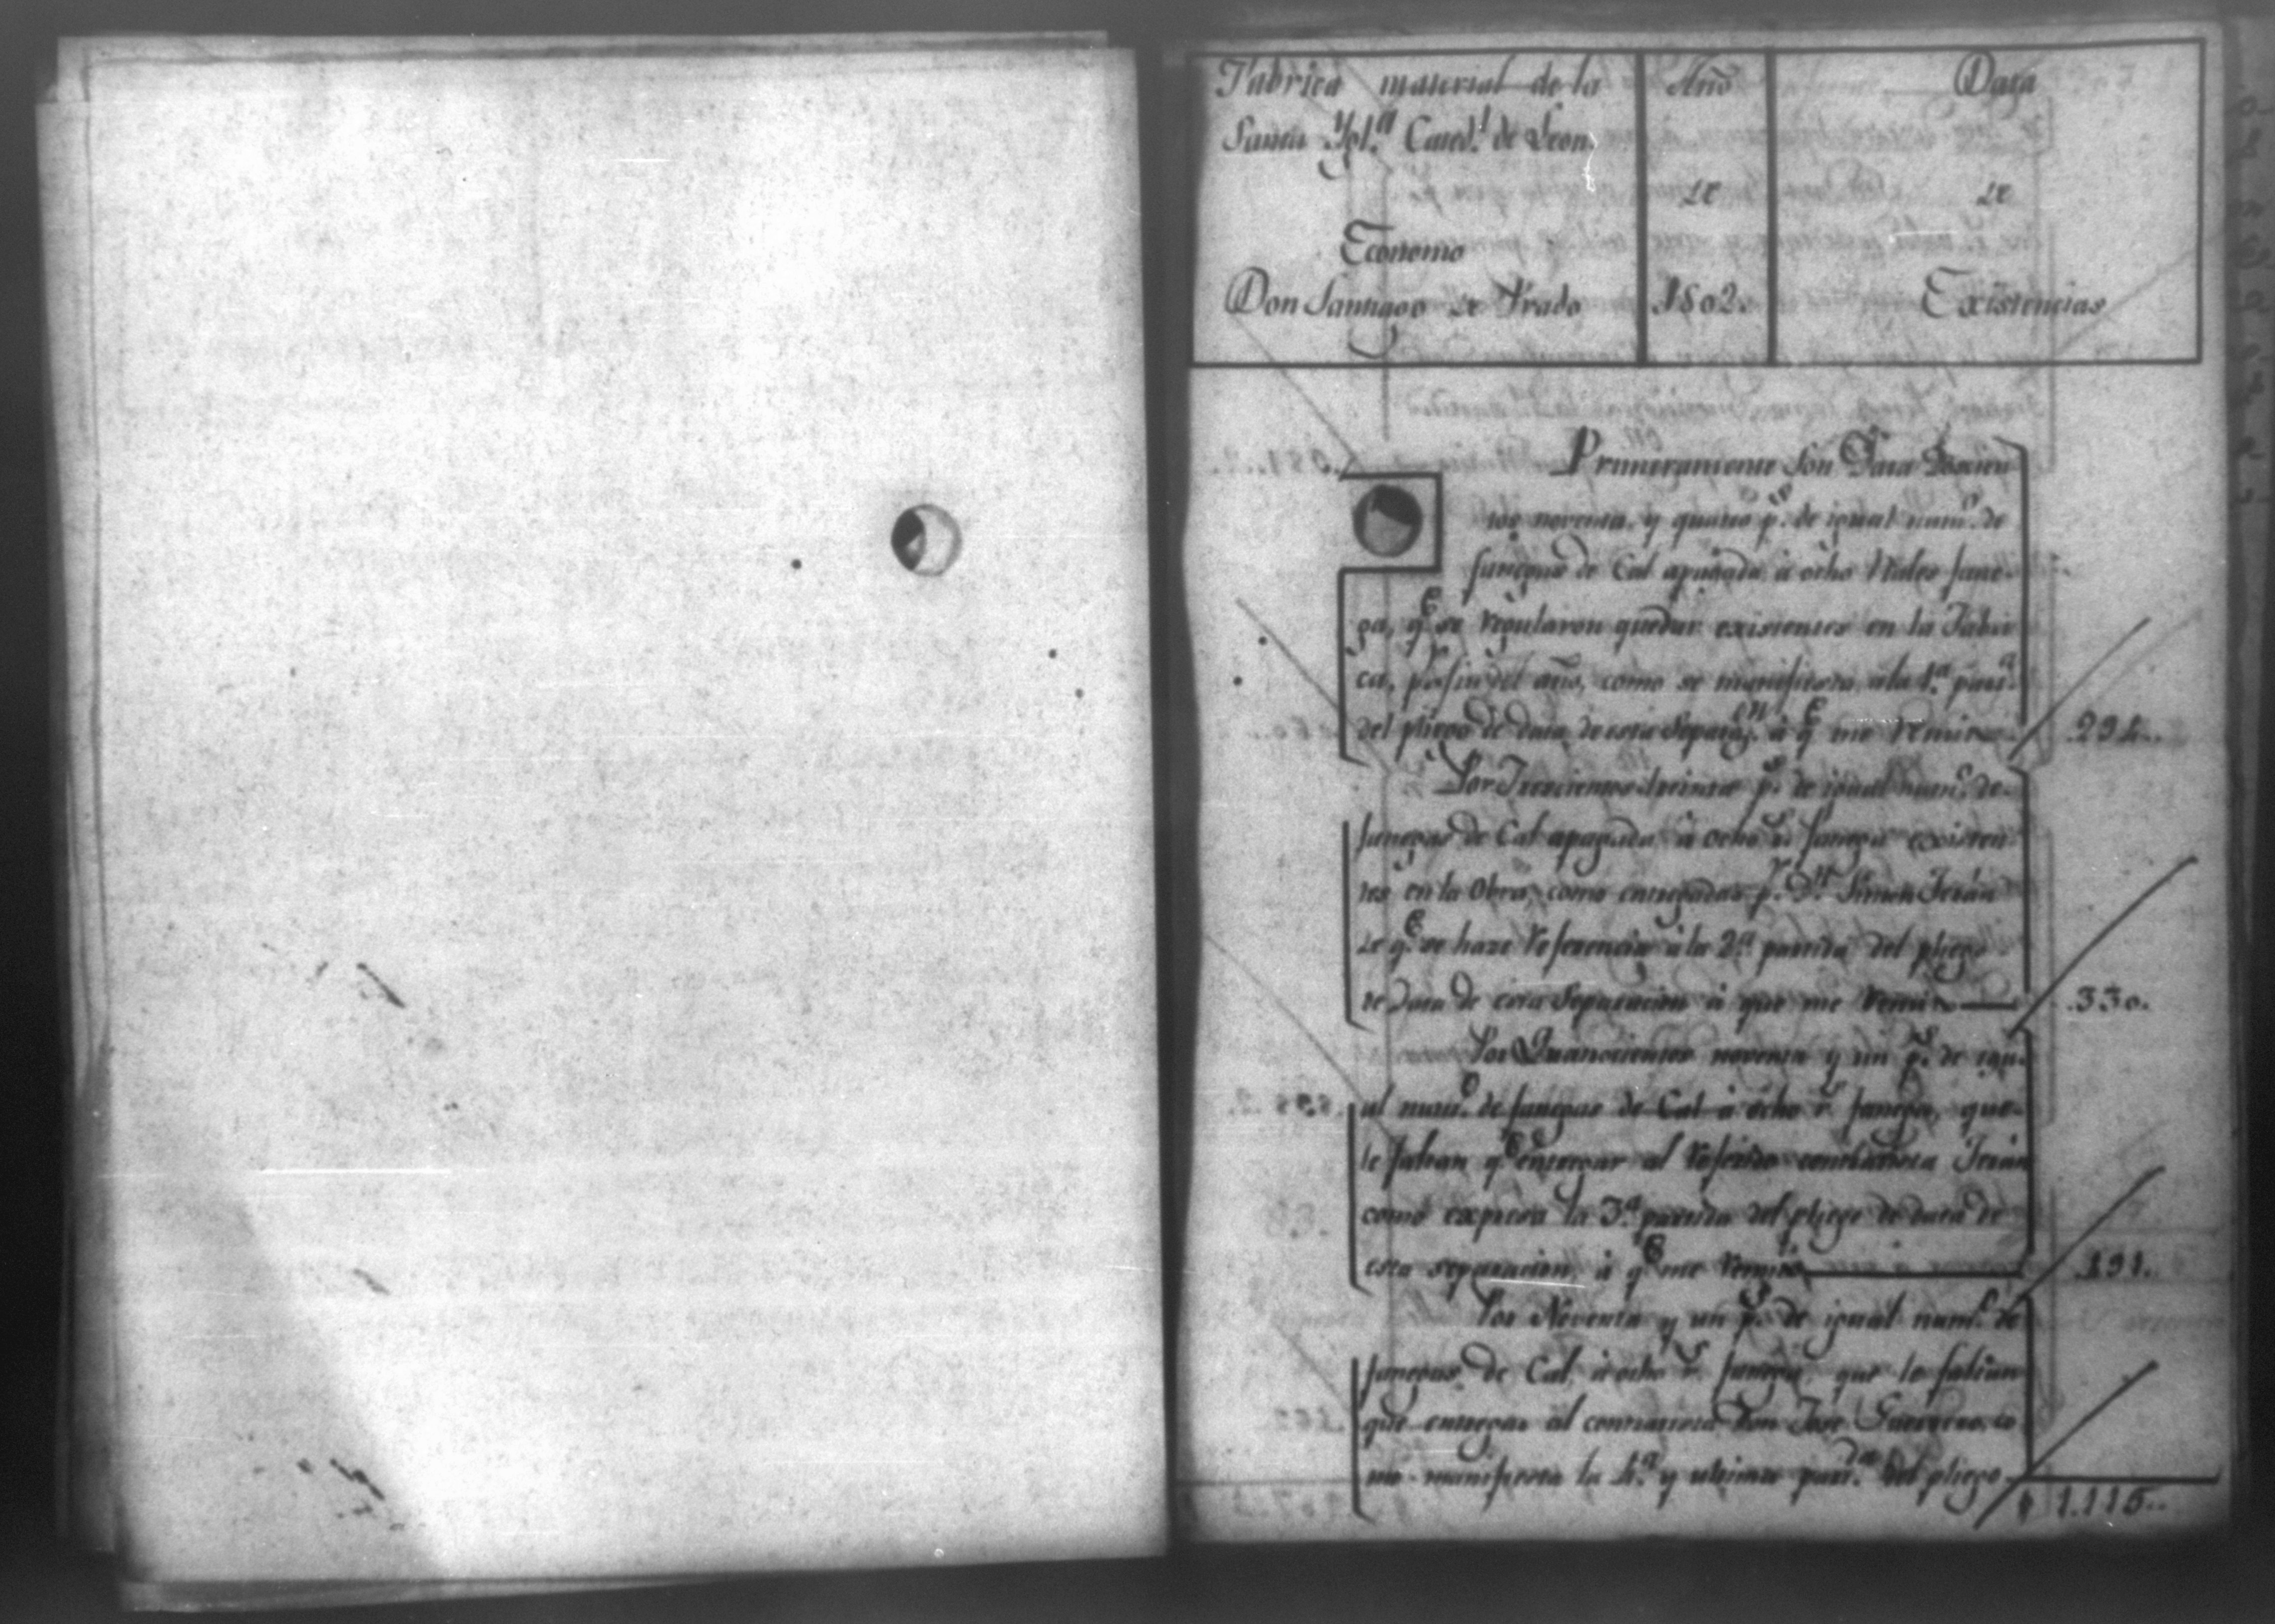 Fabrica material de la
Santa Ygl.ª Cated.l de Leon.
Economo
Don Santiago de Prado
Año
de
1802.
Data
de
Existencias
Primeramente son Data Doscien
tos noventa y quatro p.s de igual num.o de
fanegas de Cal apagada à ocho Rales fane-
ga, q.e se regularon quedar existentes en la Fabri
ca, p.r fin del año, como se manifiesta, a la 1.ª parti.ª
del pliego de data, de esta Separaz.on à q.e me remito 294..
Por Trescientos treinta p.s de igual num.o de
fanegas de Cal apagada à ocho r.s fanega existen
tes en la Obra, como entregadas p.r D.n Simon Terán
de q.e se haze referencia à la 2.ª partida del pliego
de Data de esta Separacion à que me remito 330.
Por Quatrocientos noventa y un p.s de igu-
al num.o de fanegas de Cal à ocho r.s fanega, que
le faltan q.e entregar al referido contratista Terán
como expresa la 3.ª partida del pliego de data de
esta separacion, à q.e me remito 491.
Por Noventa y un p.s de igual num.o de
fanegas de Cal, à ocho r.s fanega, que le faltan
que entregar al contratista Don Jose co
mo manifiesta la 4.ª y ultima part.da del pliego
1.115..